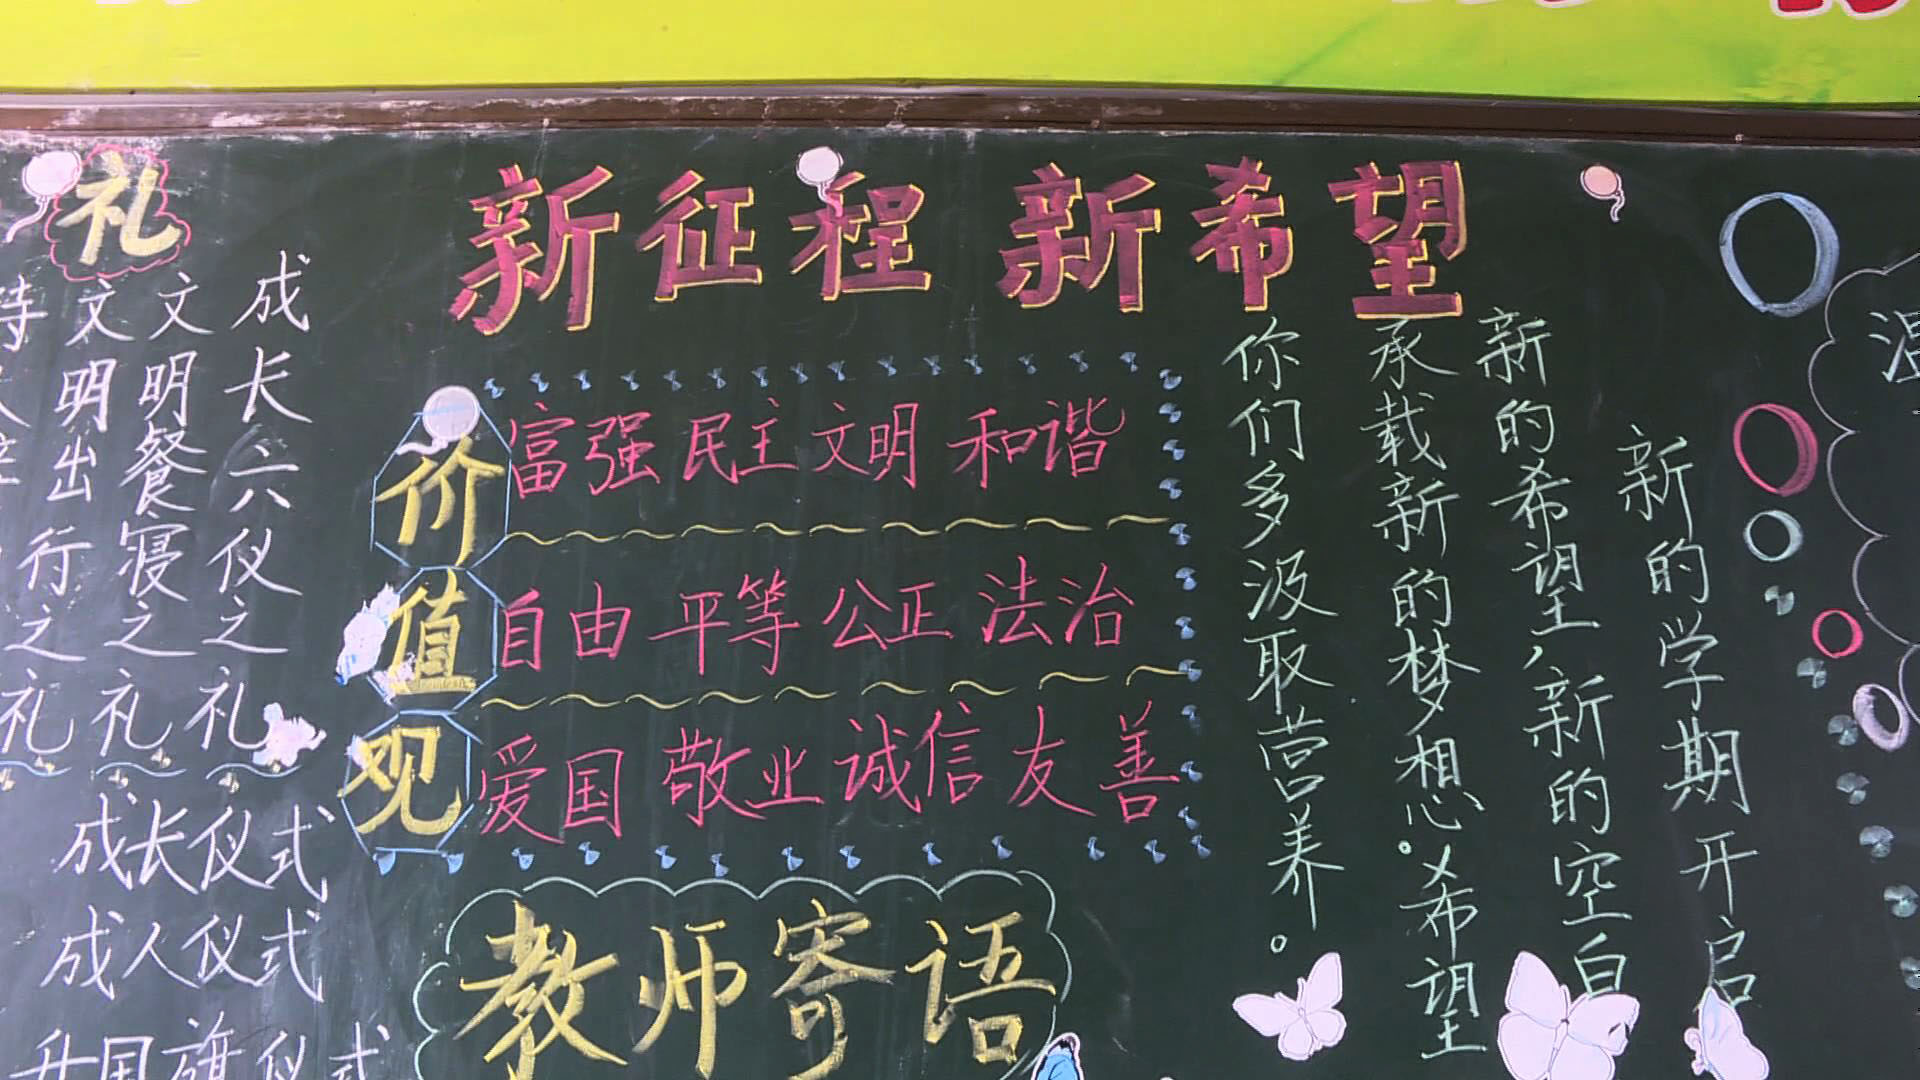 新征程 新希望
礼
成长六仪之礼
文明餐寝之礼
文明出行之礼
待
之礼
成长仪式
成人仪式
升国旗仪式
价值观
富强 民主 文明 和谐
自由 平等 公正 法治
爱国 敬业 诚信 友善
教师寄语
新的学期开启
新的希望,新的空白
承载新的梦想。希望
你们多汲取营养。